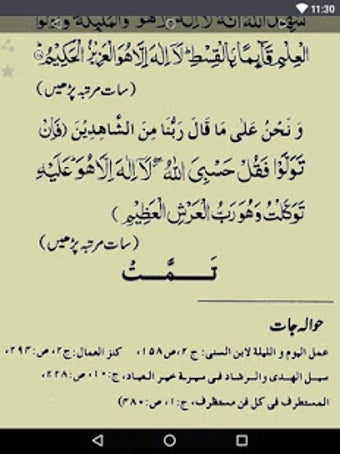 11:30
شَهِدَ اللهُ اَنَّهٗ لَآ اِلٰهَ اِلَّا هُوَ وَالْمَلٰٓئِكَةُ وَاُولُوا
الْعِلْمِ قَآئِمًا بِالْقِسْطِ لَآ اِلٰهَ اِلَّا هُوَ الْعَزِيْزُ الْحَكِيْمُ
(سات مرتبہ پڑھیں)
وَ نَحْنُ عَلٰى مَا قَالَ رَبُّنَا مِنَ الشَّاهِدِيْنَ (فَاِنْ
تَوَلَّوْا فَقُلْ حَسْبِيَ اللهُ لَآ اِلٰهَ اِلَّا هُوَ عَلَيْهِ
تَوَكَّلْتُ وَهُوَ رَبُّ الْعَرْشِ الْعَظِيْمِ)
(سات مرتبہ پڑھیں)
تَـــمَّـــتْ
حوالہ جات
عمل الیوم و اللیلة لابن السنی: ج۲، ص:۱۵۸، کنز العمال: ج۲، ص:۲۹۴،
سبل الهدی والرشاد فی سیرة خیر العباد، ج:۱۰، ص:۲۲۸،
المستطرف فی کل فن مستظرف، ج:۱، ص:۴۸۰)